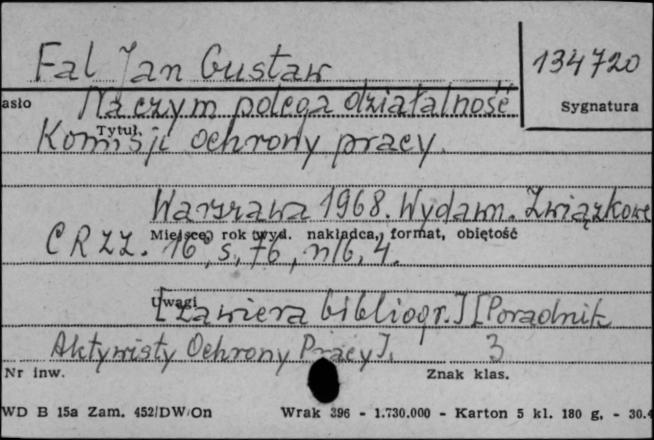 Fal Jan Gustaw
134720
asło
Na czym polega działalność
Sygnatura
Tytuł
Komisji ochrony pracy.
Warszawa 1968. Wydawn. Związkowe
Miejsce, rok wyd. nakładca, format, objętość
CRZZ. 16°, s. 76, nlb. 4.
Uwagi
[Zawiera bibliogr.] [Poradnik
Aktywisty Ochrony Pracy]. 3
Nr inw.
Znak klas.
WD B 15a Zam. 452/DW/On Wrak 396 - 1.730.000 - Karton 5 kl. 180 g. - 30.4